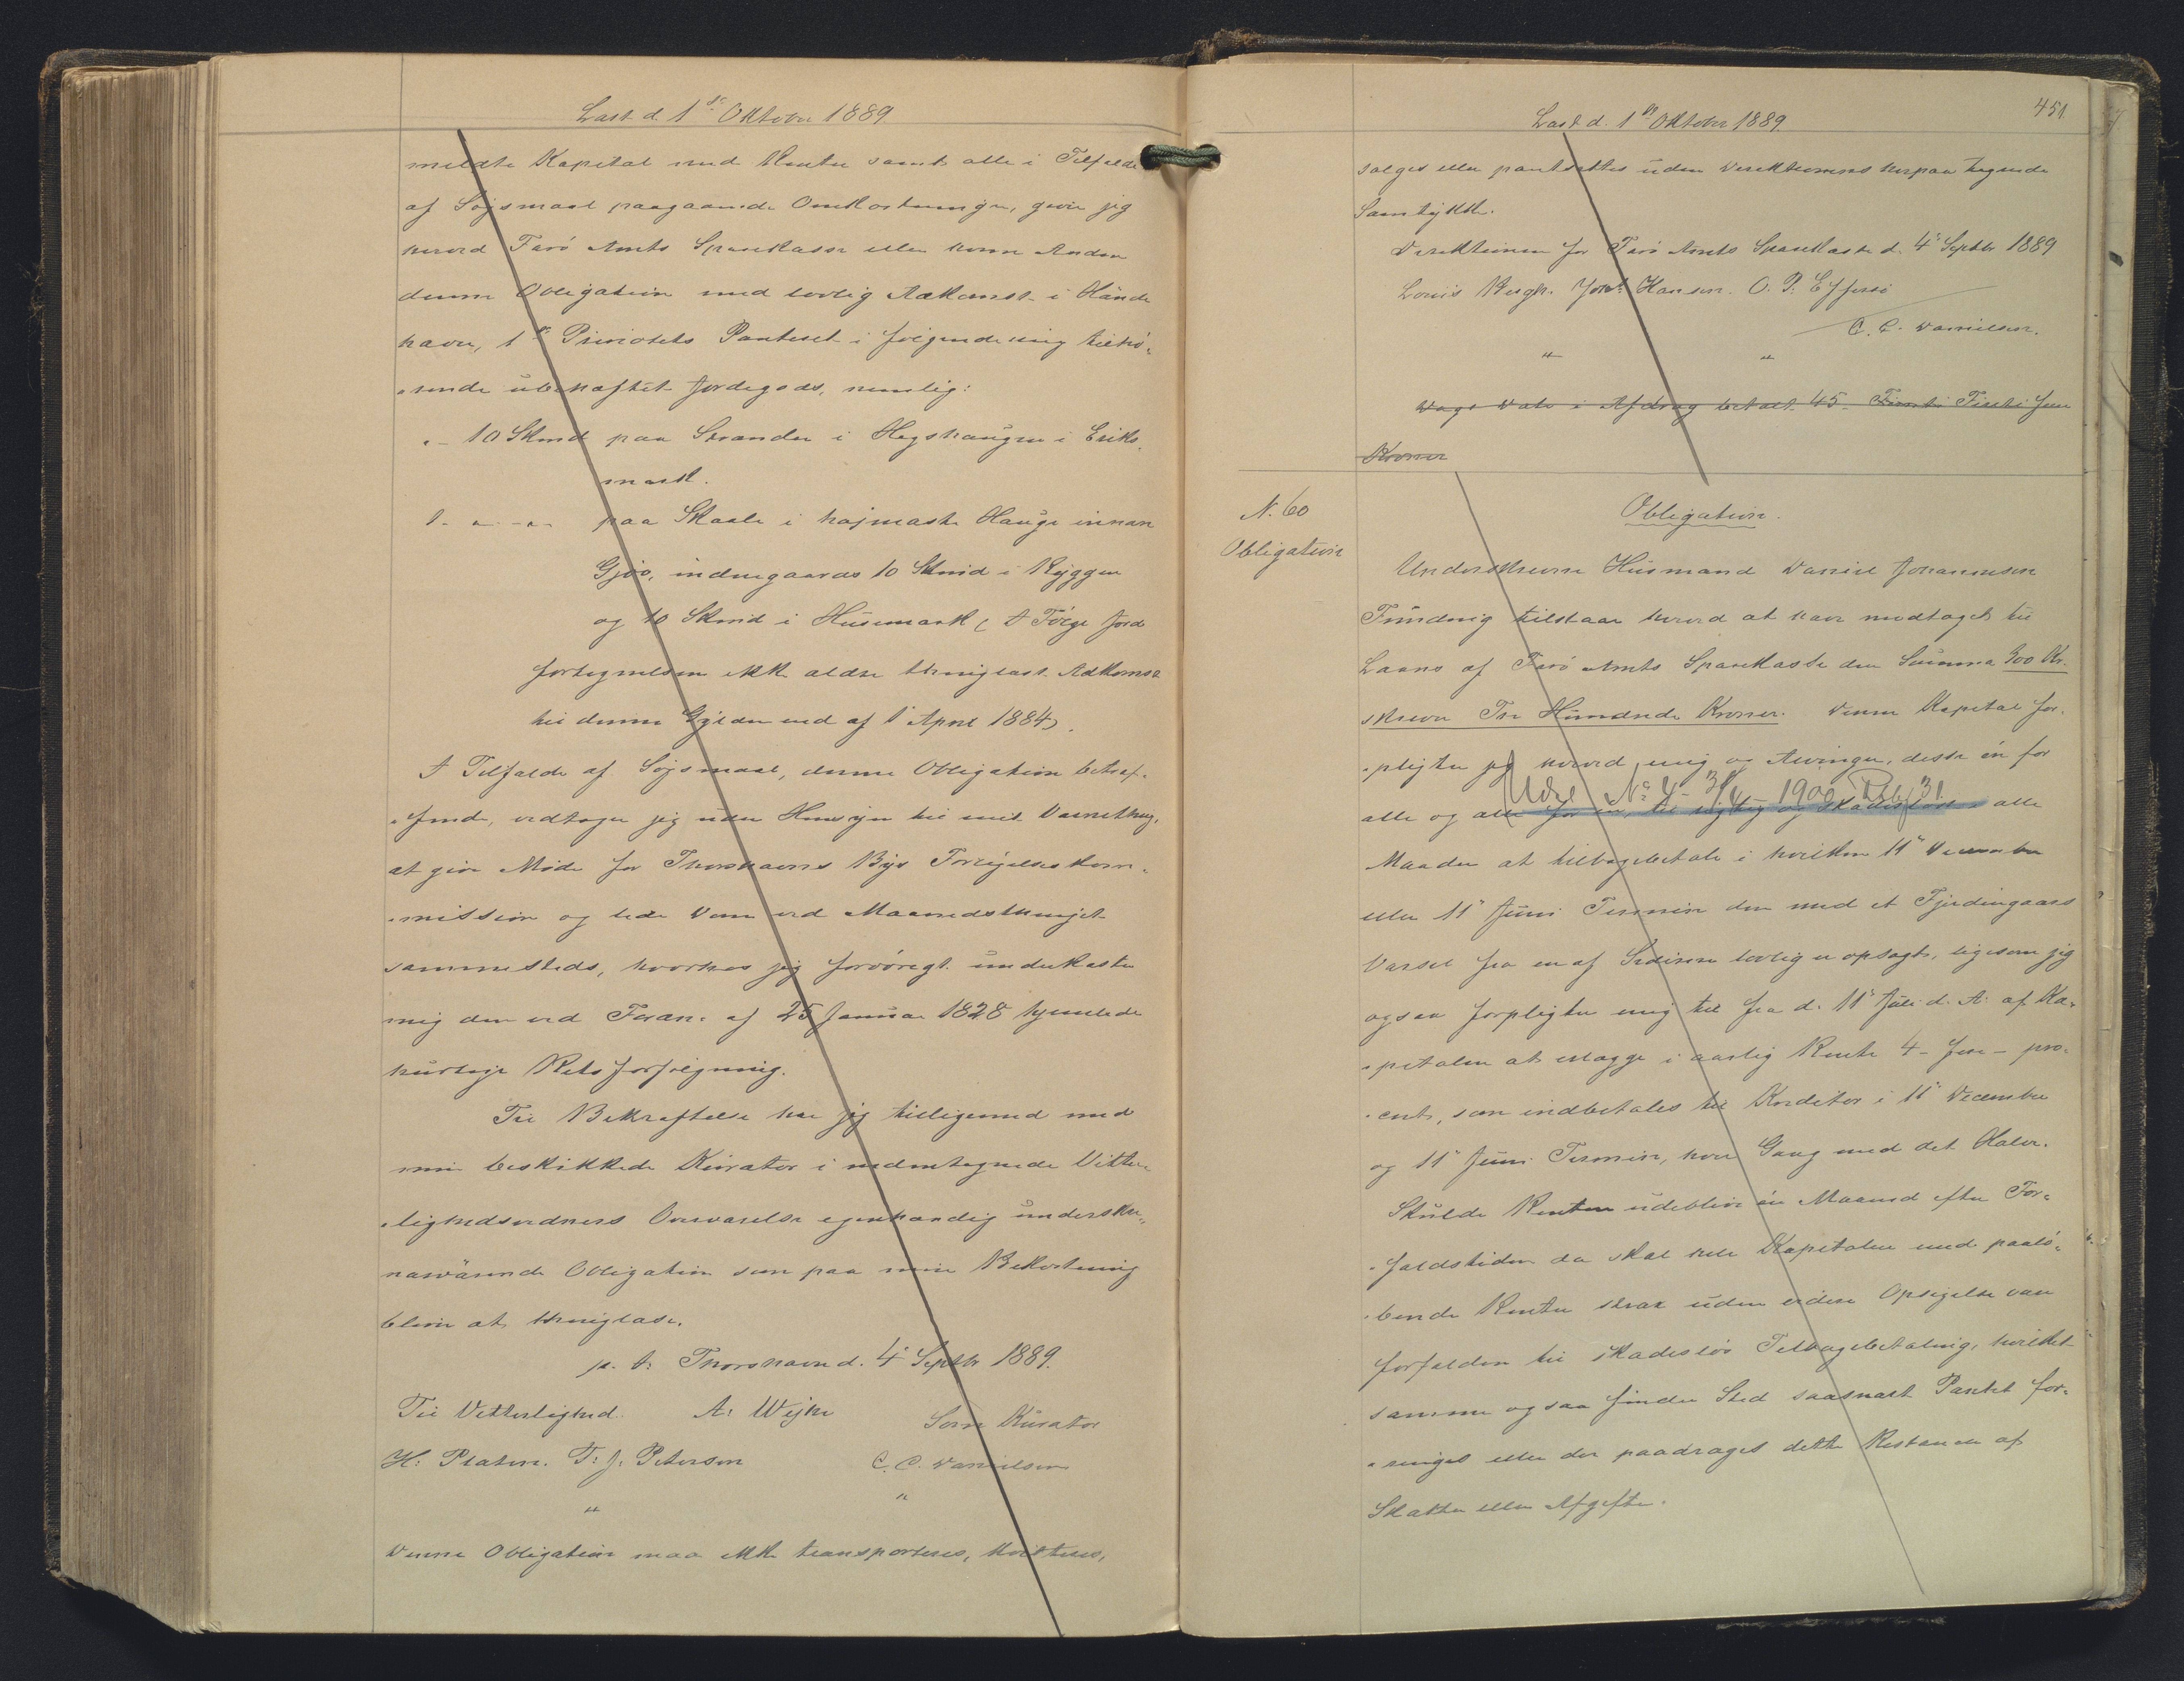 Læst d. 1ste Oktober 1889.
meldte Kapital med Renter samt alle i Tilfælde
af Søgsmaal paagaaende Omkostninger, giver jeg
herved Færø Amts Sparekasse eller hvem Anden
denne Obligation med lovlig Adkomst i Hænde
haver, 1ste Prioritets Panteret i følgende mig tilhø-
-rende ubehæftet Jordegods, nemlig:
"- 10 Skind paa Strender i Hegshaugen i Eriks-
mark.
1 - " - " - paa Skaale i højmaste Hauge innan
Gjøv, indengaards 10 Skind i Ryggen
og 10 Skind i Husemark (I Følge Jord
fortegnelsen ikke ældre thinglæst Adkomst
til denne Gylden end af 1' April 1884).
I Tilfælde af Søgsmaal, denne Obligation betræf-
-fende, vedtager jeg uden Hensyn til mit Værnething,
at give Møde for Thorshavns Byes Forligelseskom-
-mission og lide Dom ved Maanedsthinget
sammesteds, hvorhos jeg forøvrigt underkaster
mig den ved Foran. af 25 Januar 1828 hjemlede
hurtige Retsforfølgning.
Til Bekræftelse har jeg tilligemed med
min beskikkede Kurator i nedentegnede Vitter-
-lighedsvidners Overværelse egenhændig underskre-
nærværende Obligation som paa min Bekostning
bliver at thinglæse.
p. t. Thorshavn d. 4' Septbr 1889.
Til Vitterlighed. A. Wejhe Som Kurator
H. Platen. T. J. Petersen C. C. Danielsen
" "
Denne Obligation maa ikke transporteres, kvitteres,
Læst d. 1ste Oktober 1889.
451.
sælges eller pantsættes uden Direktionens herpaa tegnede
Samtykke.
Direktionen for Færø Amts Sparekasse d. 4' Septbr 1889
Louis Bergh. Hansen. O. P. Effersø
C. C. Danielsen.
" "
Dags Dato i Afdrag betalt 45
Kroner
N. 60
Obligation
Obligation.
Underskrevne Husmand Daniel Johannesen
Funding tilstaar herved at have modtaget til
Laans af Færø Amts Sparekasse den Summa 300 Kr.
skriver Tre Hundrede Kroner. Denne Kapital for-
-pligter jeg herved mig og Arvinger, disse én for
Udsl N: 4 1900
alle og alle for én, til rigtig og skadesløs i alle
Maader at tilbagebetale i hvilken 11' December
eller 11' Juni Termin den med et Fjerdingaars
Varsel fra en af Siderne lovlig er opsagt, ligesom jeg
ogsaa forpligter mig til fra d. 11' Juli d. A. af Ka-
-pitalen at erlægge i aarlig Rente 4 - fire - pro-
-cent, som indbetales til Kreditor i 11' December
og 11' Juni Termin, hver Gang med det Halve.
Skulde Renten udeblive én Maaned efter For-
-faldstiden da skal hele Kapitalen med paalø-
-bende Renter strax uden videre Opsigelse være
forfalden til skadesløs Tilbagebetaling, hvilket
samme ogsaa finder Sted saasnart Pantet for-
-ringes eller der paadrages dette Restancer af
Skatter eller Afgifter.